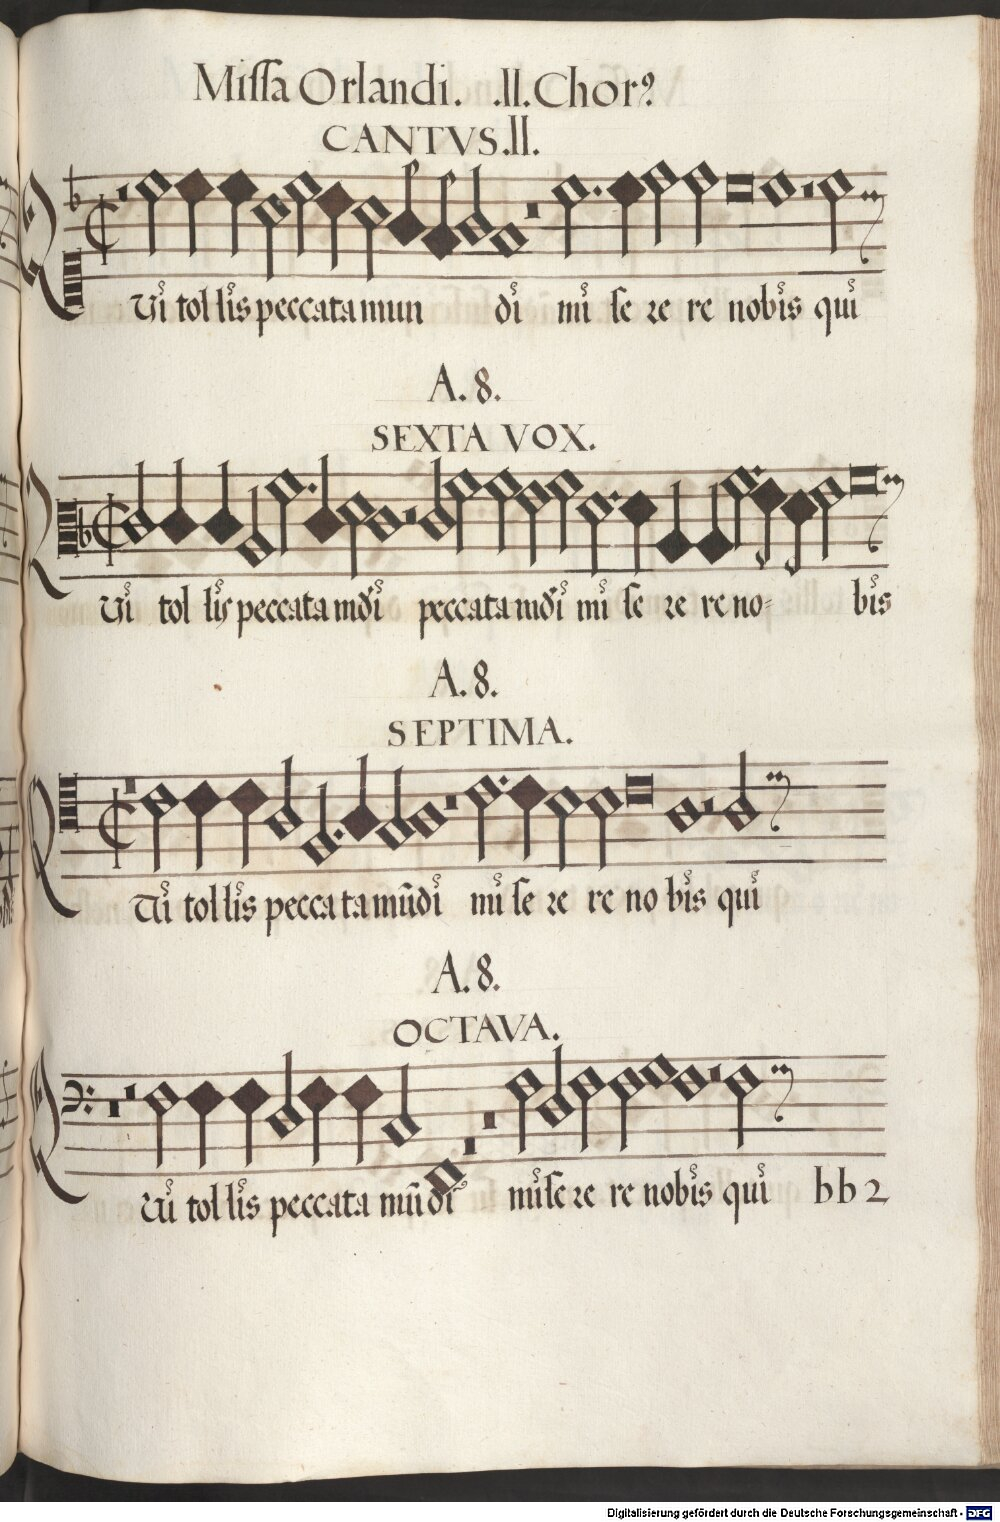 Missa Orlandi. .II. Chor9
CANTVS.II.
Qui tollis peccata mun di mi se re re nobis qui
A. 8.
SEXTA VOX.
Qui tol lis peccata mūdi peccata mūdi mi se re re no= bis
A. 8.
SEPTIMA.
Qui tollis peccata mūdi mi se re re no bis qui
A. 8.
OCTAVA.
Qui tollis peccata mūdi mise re re nobis qui bb2
Digitalisierung gefördert durch die Deutsche Forschungsgemeinschaft - DFG